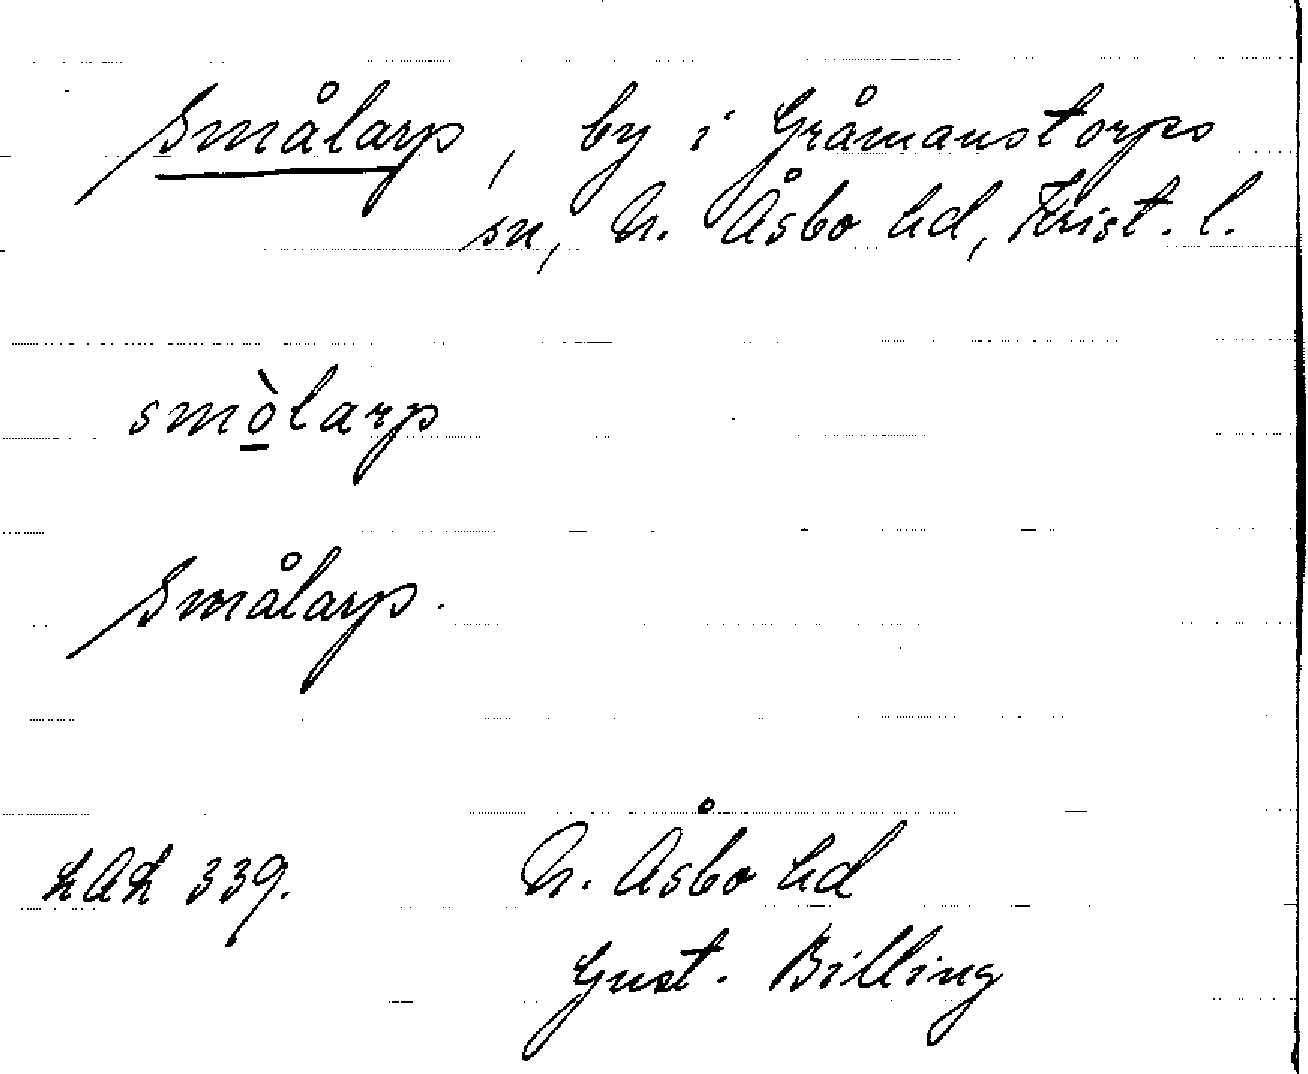 Smålarp, by i Gråmanstorps
sn, N. Åsbo hd, Krist. l.
smò̱larp
Smålarp.
LAL 339.
N. Åsbo hd
Gust. Billing